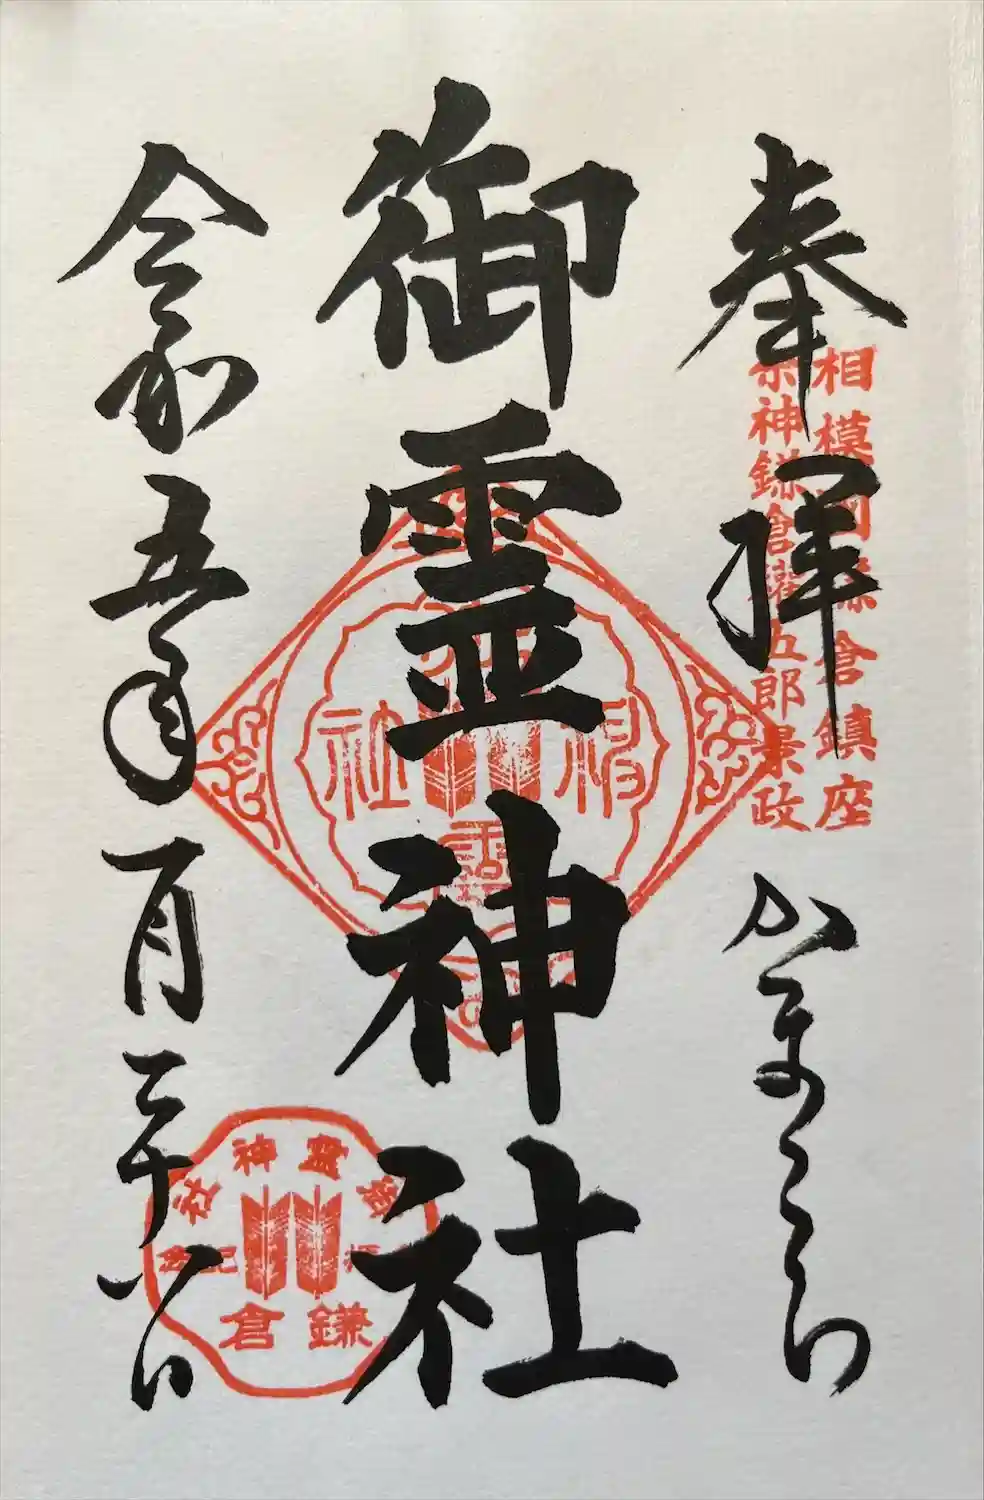 奉拝
かまくら
相模国鎌倉鎮座
祭神鎌倉権五郎景政
御霊神社
令和五年一月二十八日
御霊神社
参拝記念
鎌倉